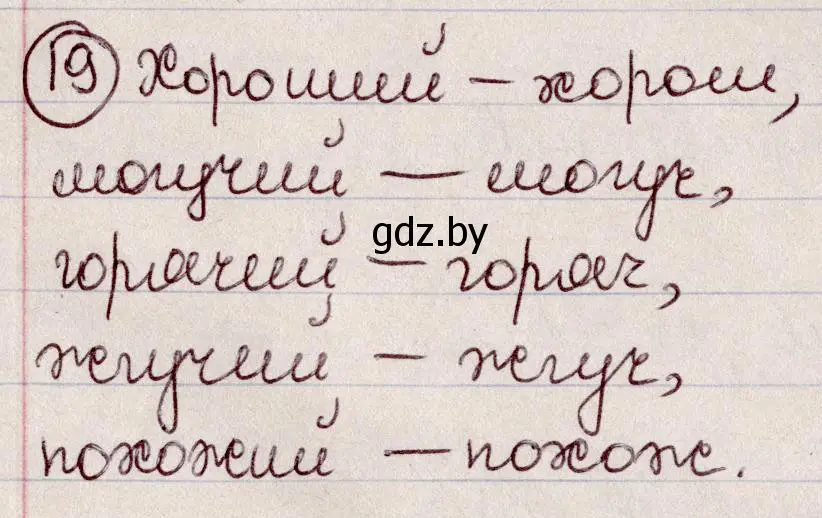 19 Хороший – хорош,
могучий – могуч,
gdz.by
горячий – горяч,
жгучий – жгуч,
похожий – похож.